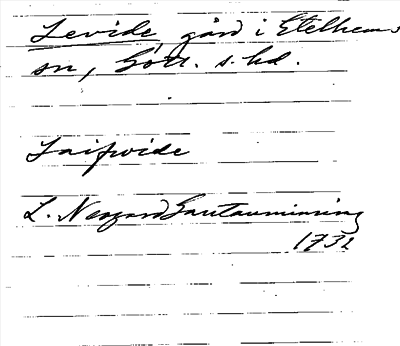 Levide gård i Etelhems
sn, Gotl. s. hd.
Laifwide
L. Neogard Gautauminning
1732